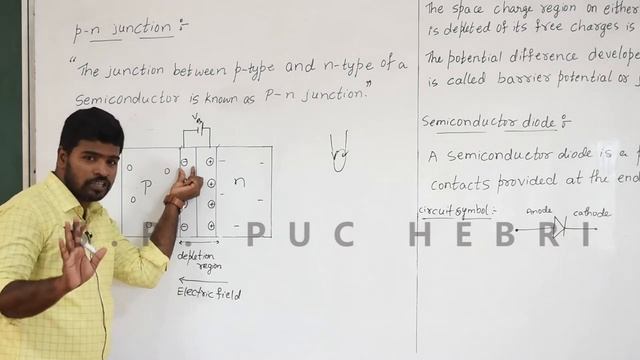 p-n junction :-
"The junction between p-type and n-type of a
semiconductor is known as P-n junction."
P
n
depletion
region
Electric field
The space charge region on either
is depleted of its free charges is
The potential difference develope
is called barrier potential or
Semiconductor diode :-
A semiconductor diode is a
contacts provided at the end
circuit symbol :-
Anode
cathode
PUC HEBRI